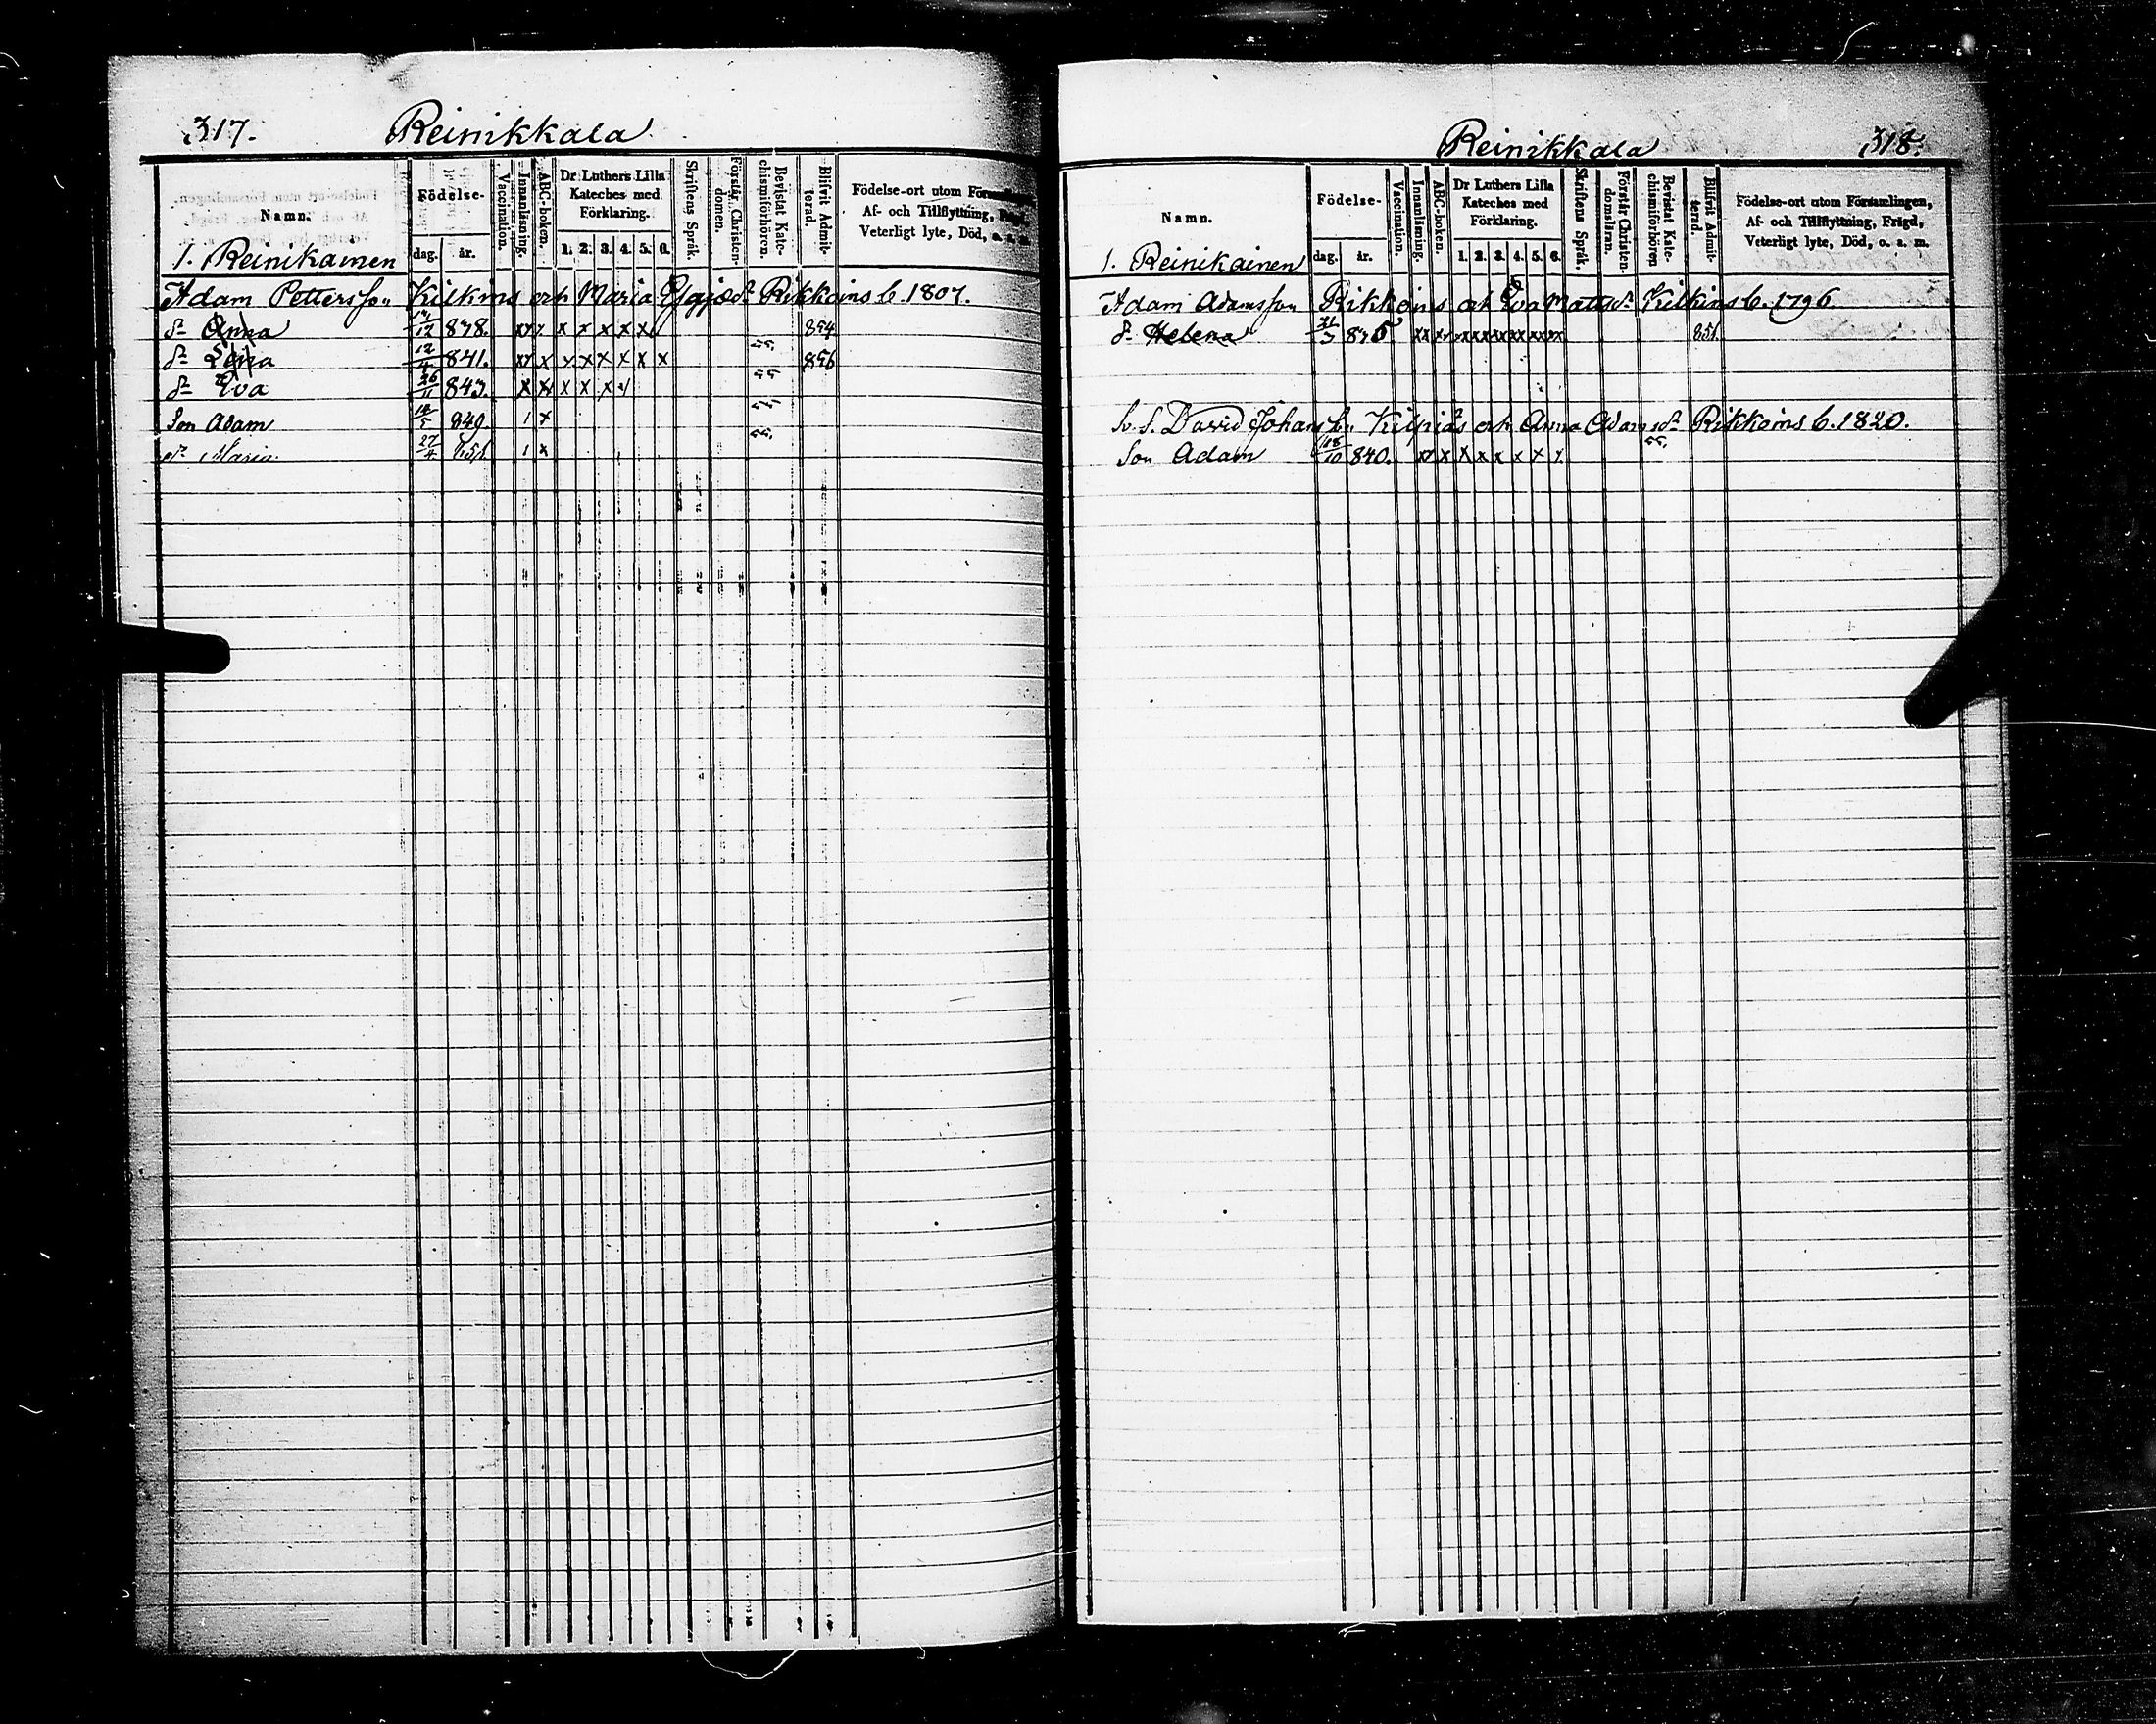 317. Reinikkala
Namn. Födelse- Vaccination. Innanläsning. ABC-boken. Dr Luthers Lilla Kateches med Förklaring. Skriftens Språk. Förstår Christendomen. Bevistat Katechismiförhören. Blifvit Admitterad. Födelse-ort utom
Af- och Tillflyttning,
Veterligt lyte, Död, o. a. m.
1. Reinikainen dag. år. 1. 2. 3. 4. 5. 6.
Adam Pettersson Kilkins och Maria dr Rikkoins b. 1807.
dr Anna 12 838. x x x x x x x 854
dr Lena 12/4 841. x x x x x x x x 55. 856
dr Eva 26/11 843. x x x x x x 55
Son Adam 18/5 849. 1 x 55
dr Maria 27/4 851. 1 x 55.
Reinikkala 318.
Namn. Födelse- Vaccination. Innanläsning. ABC-boken. Dr Luthers Lilla Kateches med Förklaring. Skriftens Språk. Förstår Christendomsläran. Bevistat Katechismiförhören Blifvit Admitterad. Födelse-ort utom Församlingen,
Af- och Tillflyttning, Frägd,
Veterligt lyte, Död, o. a. m.
1. Reinikainen dag. år. 1. 2. 3. 4. 5. 6.
Adam Adamsson Rikkoins och Eva Mattsdr Kilkins b. 1796.
dr Helena 31/3 835 xx xx xx xx xx xx xx xx 851.
David Johansson Kilpiäs och Anna Adamsdr Rikkoins b. 1820.
Son Adam 10 840. xx x x x x x x x 55.